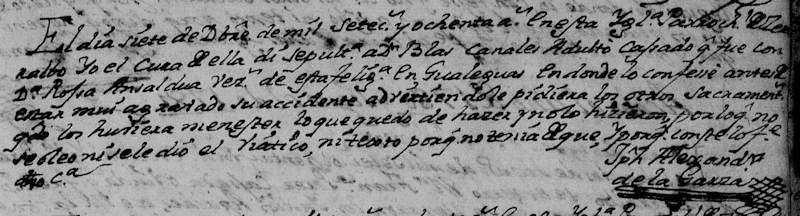 El dia siete de Dbre de mil setecs y ochenta as En esta Ygla Parrochl de Zer
ralbo Yo el Cura de ella di sepulta a Dn Blas Canales Adulto Casado q fue con
Da Rossa Ansaldua Vezs de esta feliga En Gualeguas En donde lo confese antes de
estar mui agravado su accidente advirtiendole pidiera los otros Sacramentos
qdo los huviera menester lo que quedo de hazer y no lo hizieron, por lo q no
se oleo ni se le dió el Viatico, ni texto porq no tenia de que, y porq conste lo fe
Jph Alexandro
de la Garza